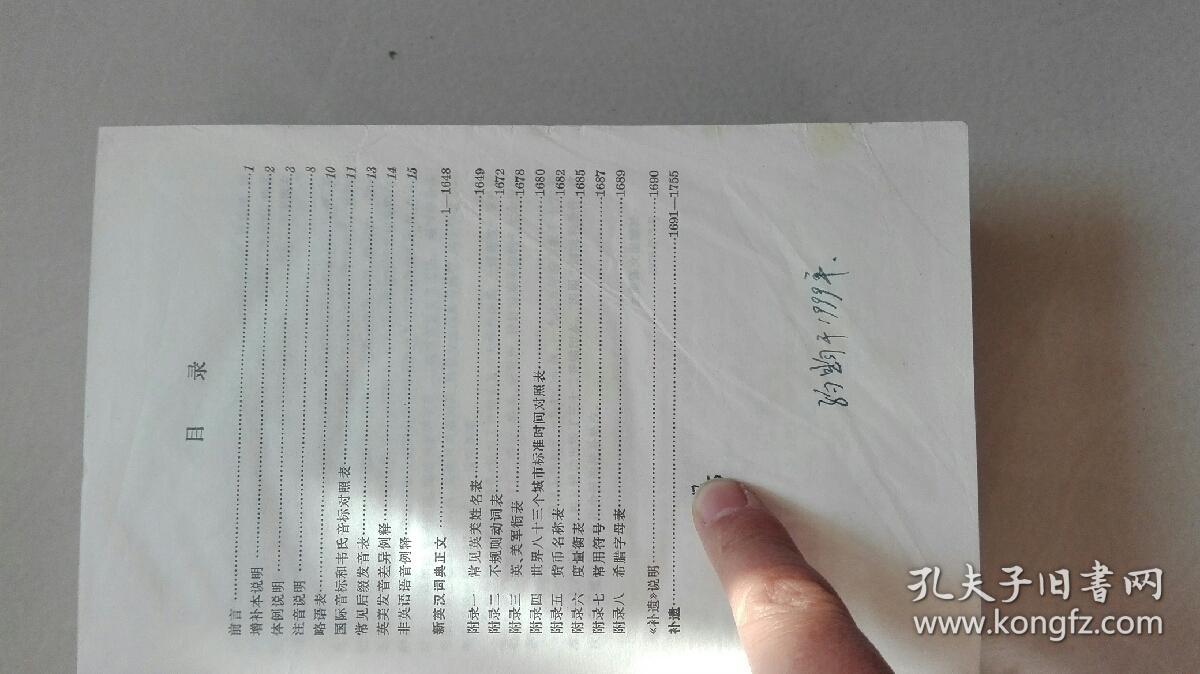 目 录
前言……1
增补本说明……2
体例说明……3
注音说明……8
略语表……10
国际音标和韦氏音标对照表……11
常见后缀发音表……13
英美发音差异例释……14
非英语语音例释……15
新英汉词典正文……1—1648
附录一 常见英美姓名表……1649
附录二 不规则动词表……1672
附录三 英、美军衔表……1678
附录四 世界八十三个城市标准时间对照表……1680
附录五 货币名称表……1682
附录六 度量衡表……1685
附录七 常用符号……1687
附录八 希腊字母表……1689
《补遗》说明……1690
补遗……1691—1755
于1999年.
孔夫子旧书网
www.kongfz.com